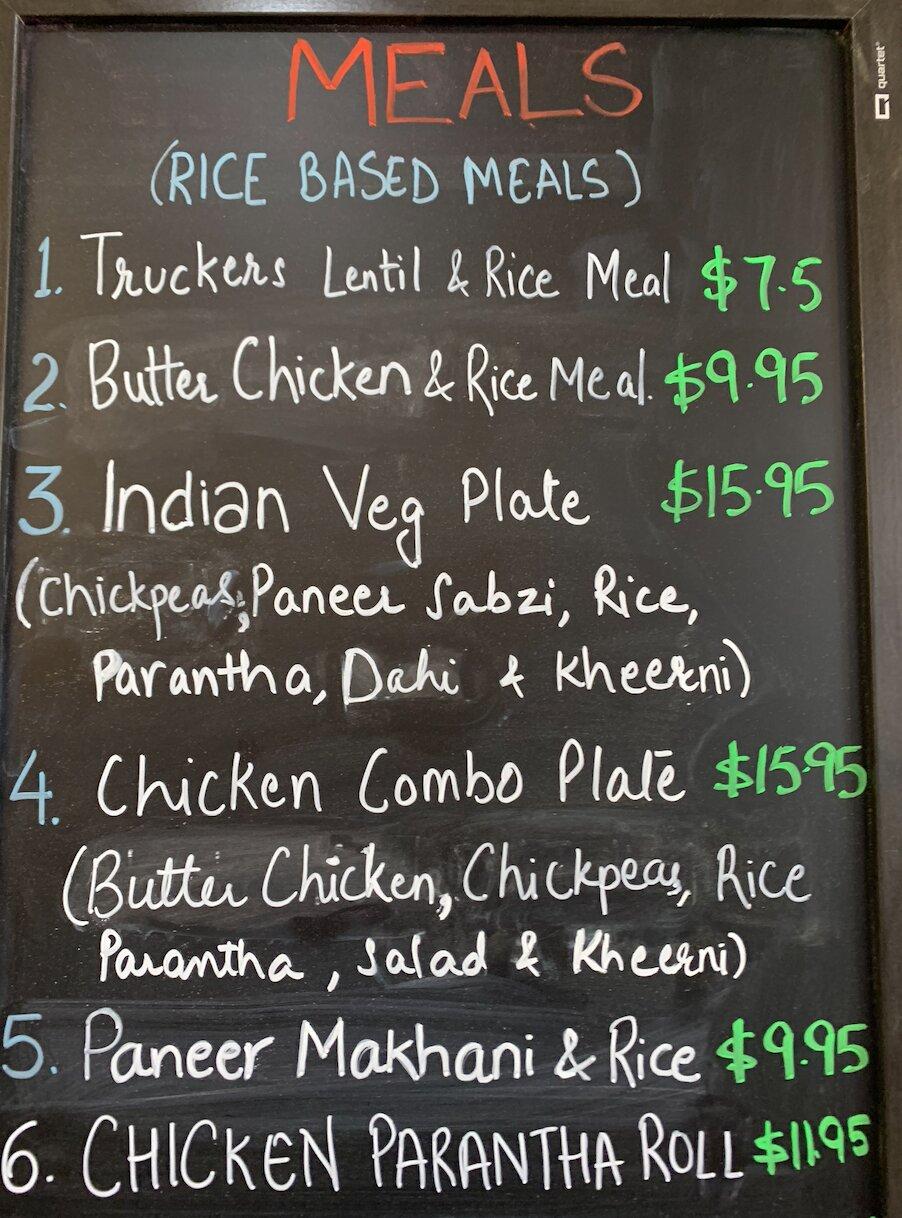 MEALS
quartet
(RICE BASED MEALS)
1. Truckers Lentil & Rice Meal $7.5
2. Butter Chicken & Rice Meal. $9.95
3. Indian Veg Plate $15.95
(Chickpeas, Paneer Sabzi, Rice,
Parantha, Dahi & Kheerni)
4. Chicken Combo Plate $15.95
(Butter Chicken, Chickpeas, Rice
Parantha, Salad & Kheerni)
5. Paneer Makhani & Rice $9.95
6. CHICKEN PARANTHA ROLL $11.95